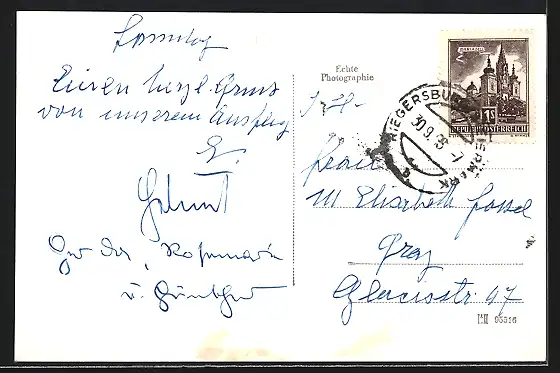 Sonntag
Einen herzl. Gruß
von unserem Ausflug
E.
Helmut
Gerda, Rosemarie
u. Günther
Echte
Photographie
MARIAZELL
1S
REPUBLIK ÖSTERREICH
RIEGERSBURG
30.9.58-7
a
STEIERMARK
Frau
M Elisabeth
Graz
Glacisstr. 47
95516